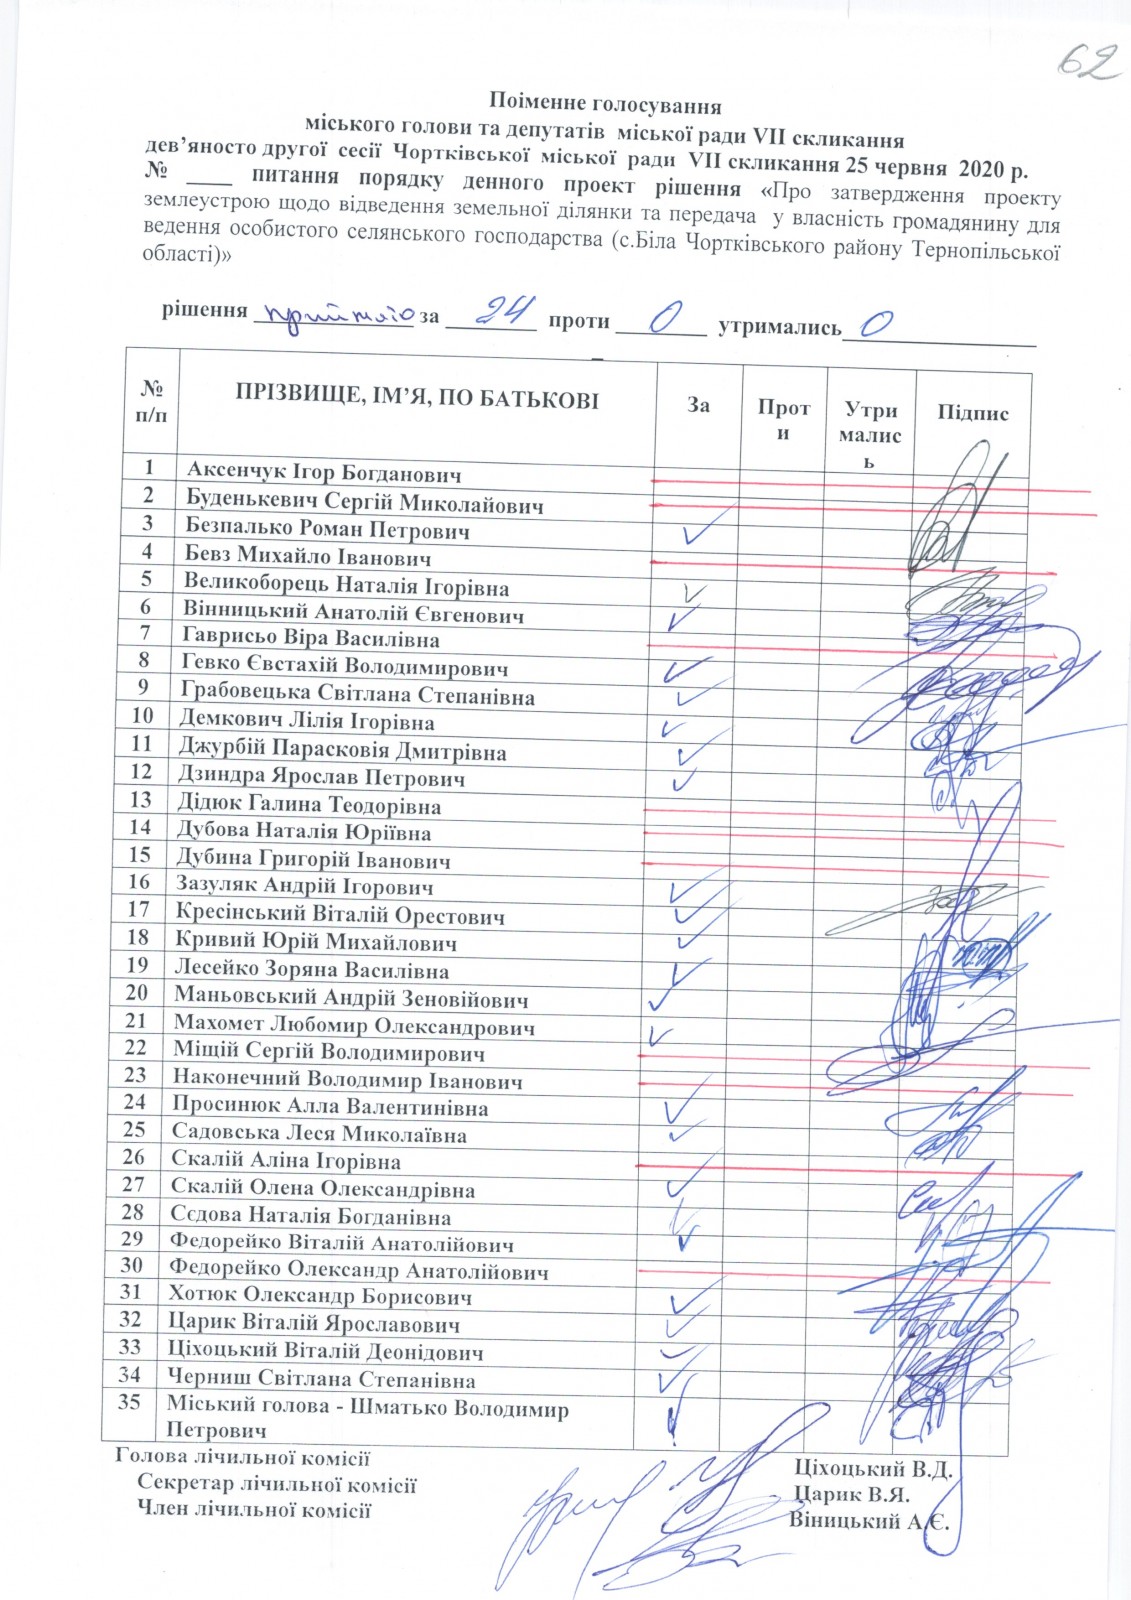 62
Поіменне голосування
міського голови та депутатів міської ради VII скликання
дев’яносто другої сесії Чортківської міської ради VII скликання 25 червня 2020 р.
№ ____ питання порядку денного проект рішення «Про затвердження проекту
землеустрою щодо відведення земельної ділянки та передача у власність громадянину для
ведення особистого селянського господарства (с.Біла Чортківського району Тернопільської
області)»
рішення прийнято за 24 проти 0 утримались 0
№ п/п ПРІЗВИЩЕ, ІМ’Я, ПО БАТЬКОВІ За Прот и Утри малис ь Підпис
1 Аксенчук Ігор Богданович
2 Буденькевич Сергій Миколайович
3 Безпалько Роман Петрович ✓
4 Бевз Михайло Іванович
5 Великоборець Наталія Ігорівна ✓
6 Вінницький Анатолій Євгенович ✓
7 Гаврисьо Віра Василівна
8 Гевко Євстахій Володимирович ✓
9 Грабовецька Світлана Степанівна ✓
10 Демкович Лілія Ігорівна ✓
11 Джурбій Парасковія Дмитрівна ✓
12 Дзиндра Ярослав Петрович ✓
13 Дідюк Галина Теодорівна
14 Дубова Наталія Юріївна
15 Дубина Григорій Іванович
16 Зазуляк Андрій Ігорович ✓
17 Кресінський Віталій Орестович ✓
18 Кривий Юрій Михайлович ✓
19 Лесейко Зоряна Василівна ✓
20 Маньовський Андрій Зеновійович ✓
21 Махомет Любомир Олександрович ✓
22 Міщій Сергій Володимирович
23 Наконечний Володимир Іванович
24 Просинюк Алла Валентинівна ✓
25 Садовська Леся Миколаївна ✓
26 Скалій Аліна Ігорівна
27 Скалій Олена Олександрівна ✓
28 Сєдова Наталія Богданівна ✓
29 Федорейко Віталій Анатолійович ✓
30 Федорейко Олександр Анатолійович
31 Хотюк Олександр Борисович ✓
32 Царик Віталій Ярославович ✓
33 Ціхоцький Віталій Деонідович ✓
34 Черниш Світлана Степанівна ✓
35 Міський голова - Шматько Володимир ✓
Петрович
Голова лічильної комісії Ціхоцький В.Д.
Секретар лічильної комісії Царик В.Я.
Член лічильної комісії Віницький А.Є.